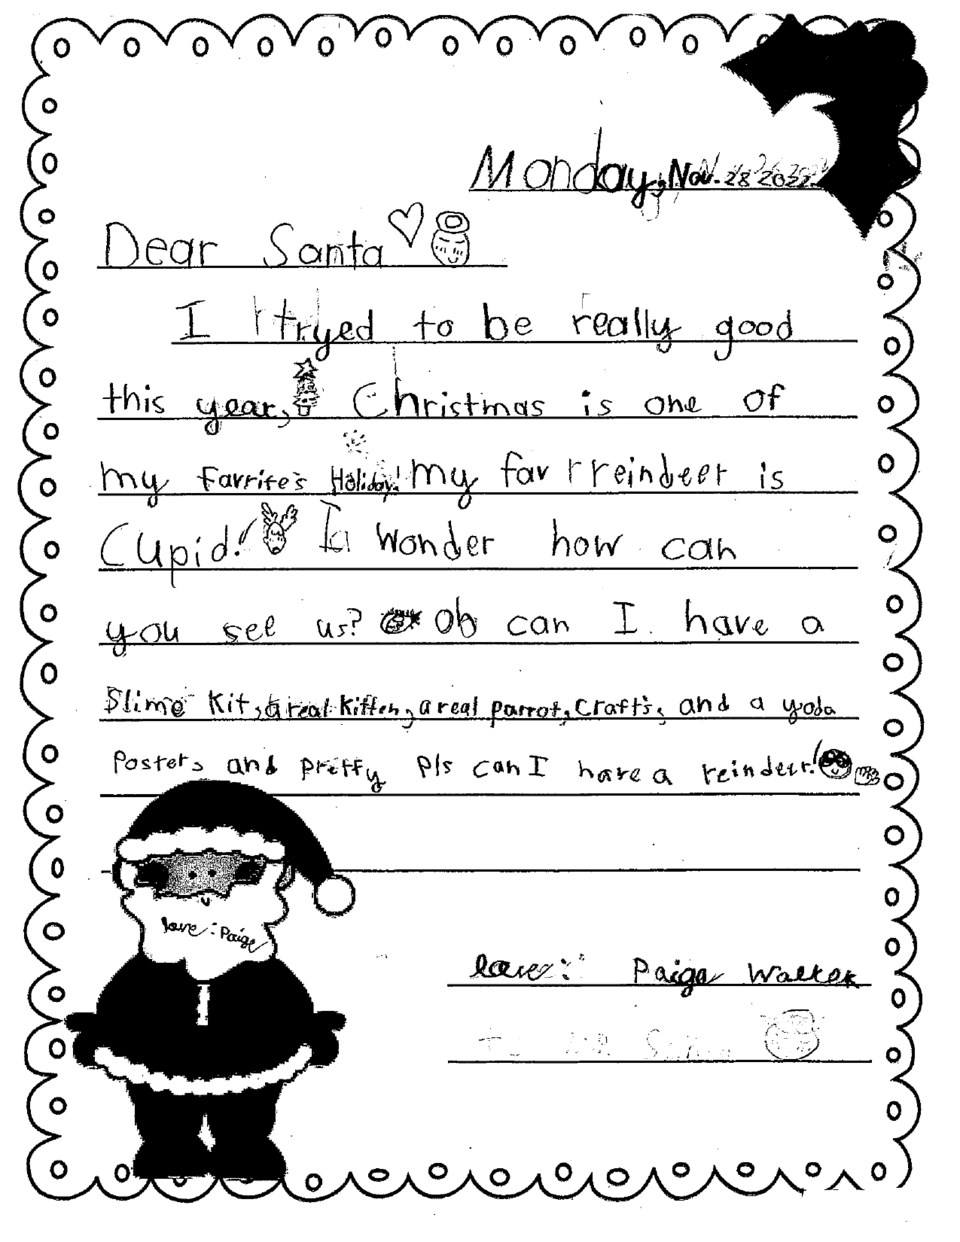 Monday, Nov. 28 2022
Dear Santa
I tryed to be really good
this year, Christmas is one of
my Favrite's Holiday! my fav rreindeer is
Cupid! I wonder how can
you see us? Oh can I have a
Slime Kit, a real kitten, a real parrot, crafts, and a yoda
Poster, and pretty pls can I have a reindeer!
love: Paige
love: Paige Walker